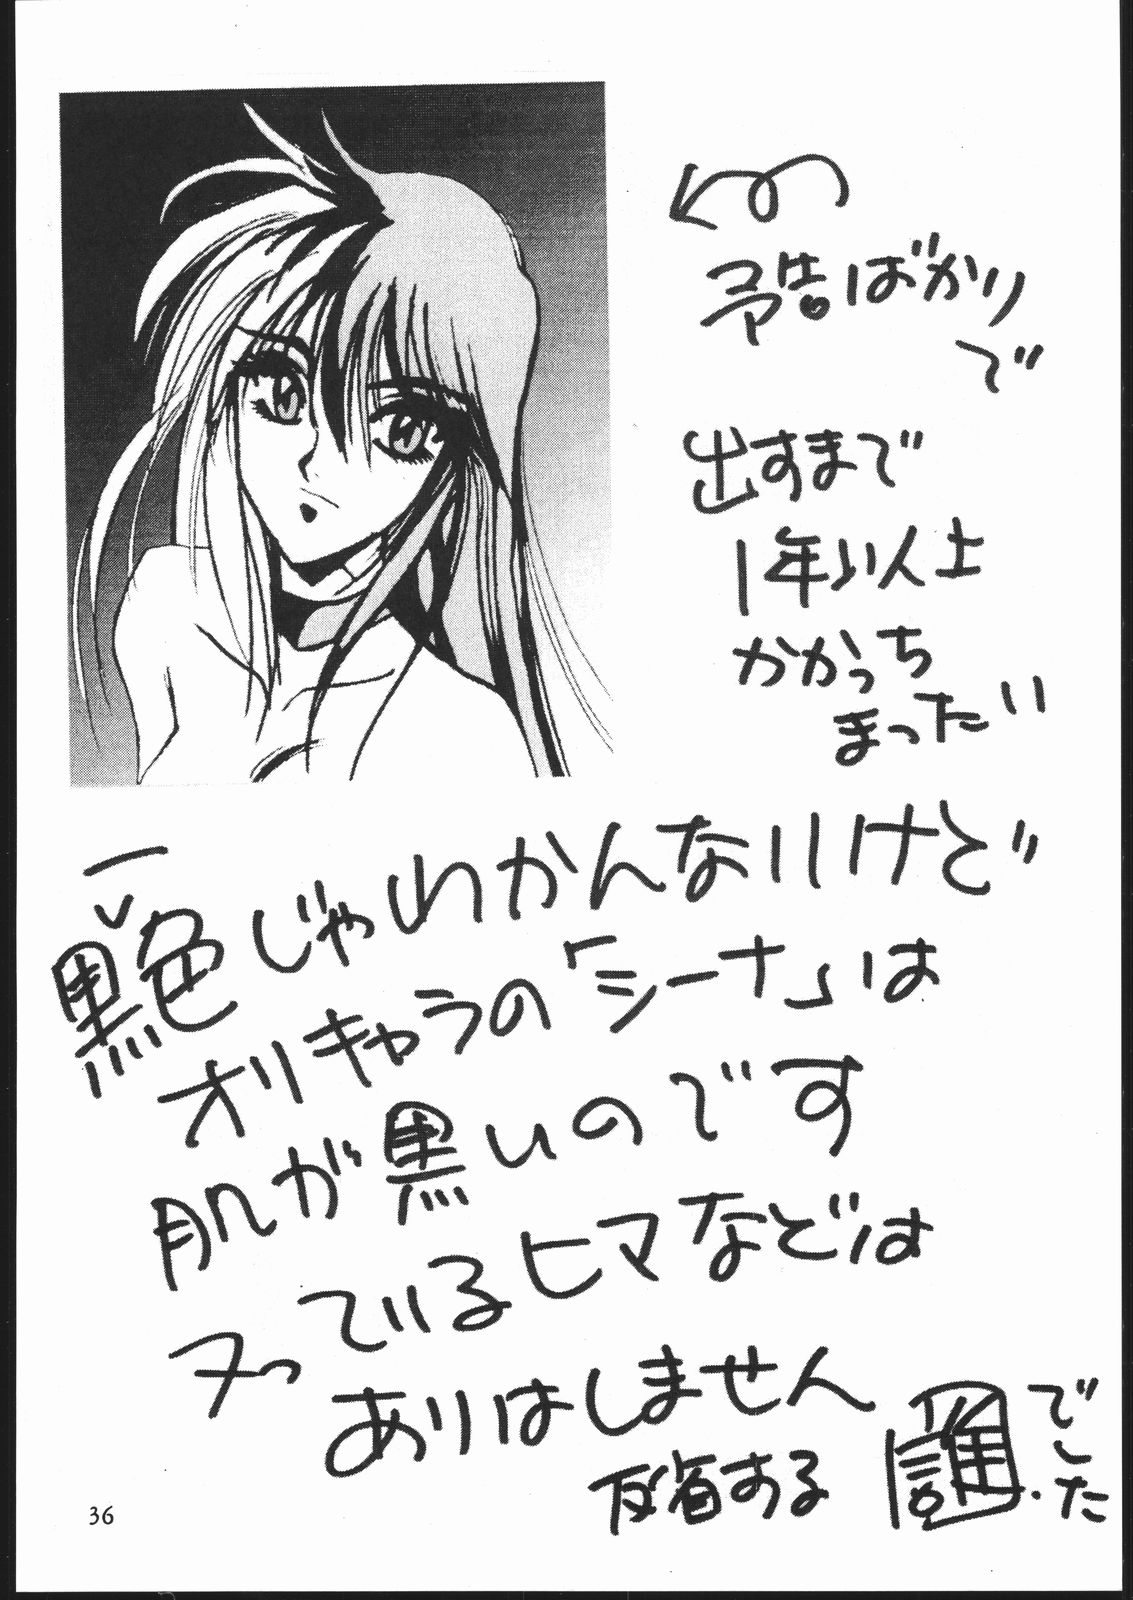 予告ばかり
で
出すまで
1年以上
かかっち
まったい
一
黒色じゃわかんないけど
オリキャラの「シーナ」は
肌が黒いのです
ヌっているヒマなどは
ありはしません
反省する
でした
36